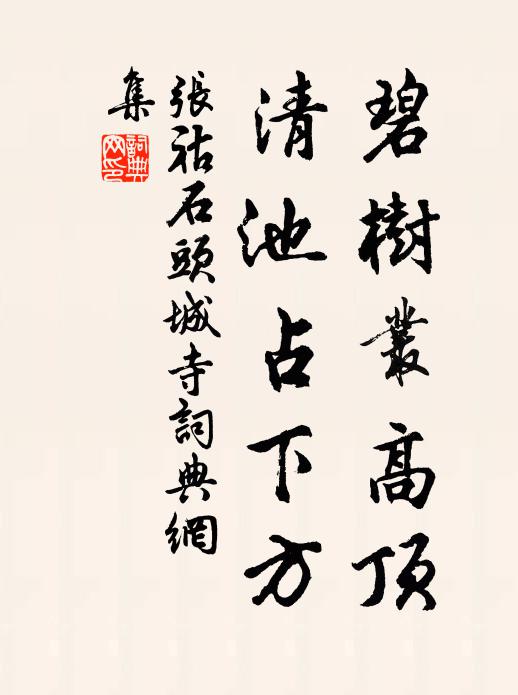 碧樹叢高頂
清池占下方
張祜石頭城寺詞典網
集
詞典
网印